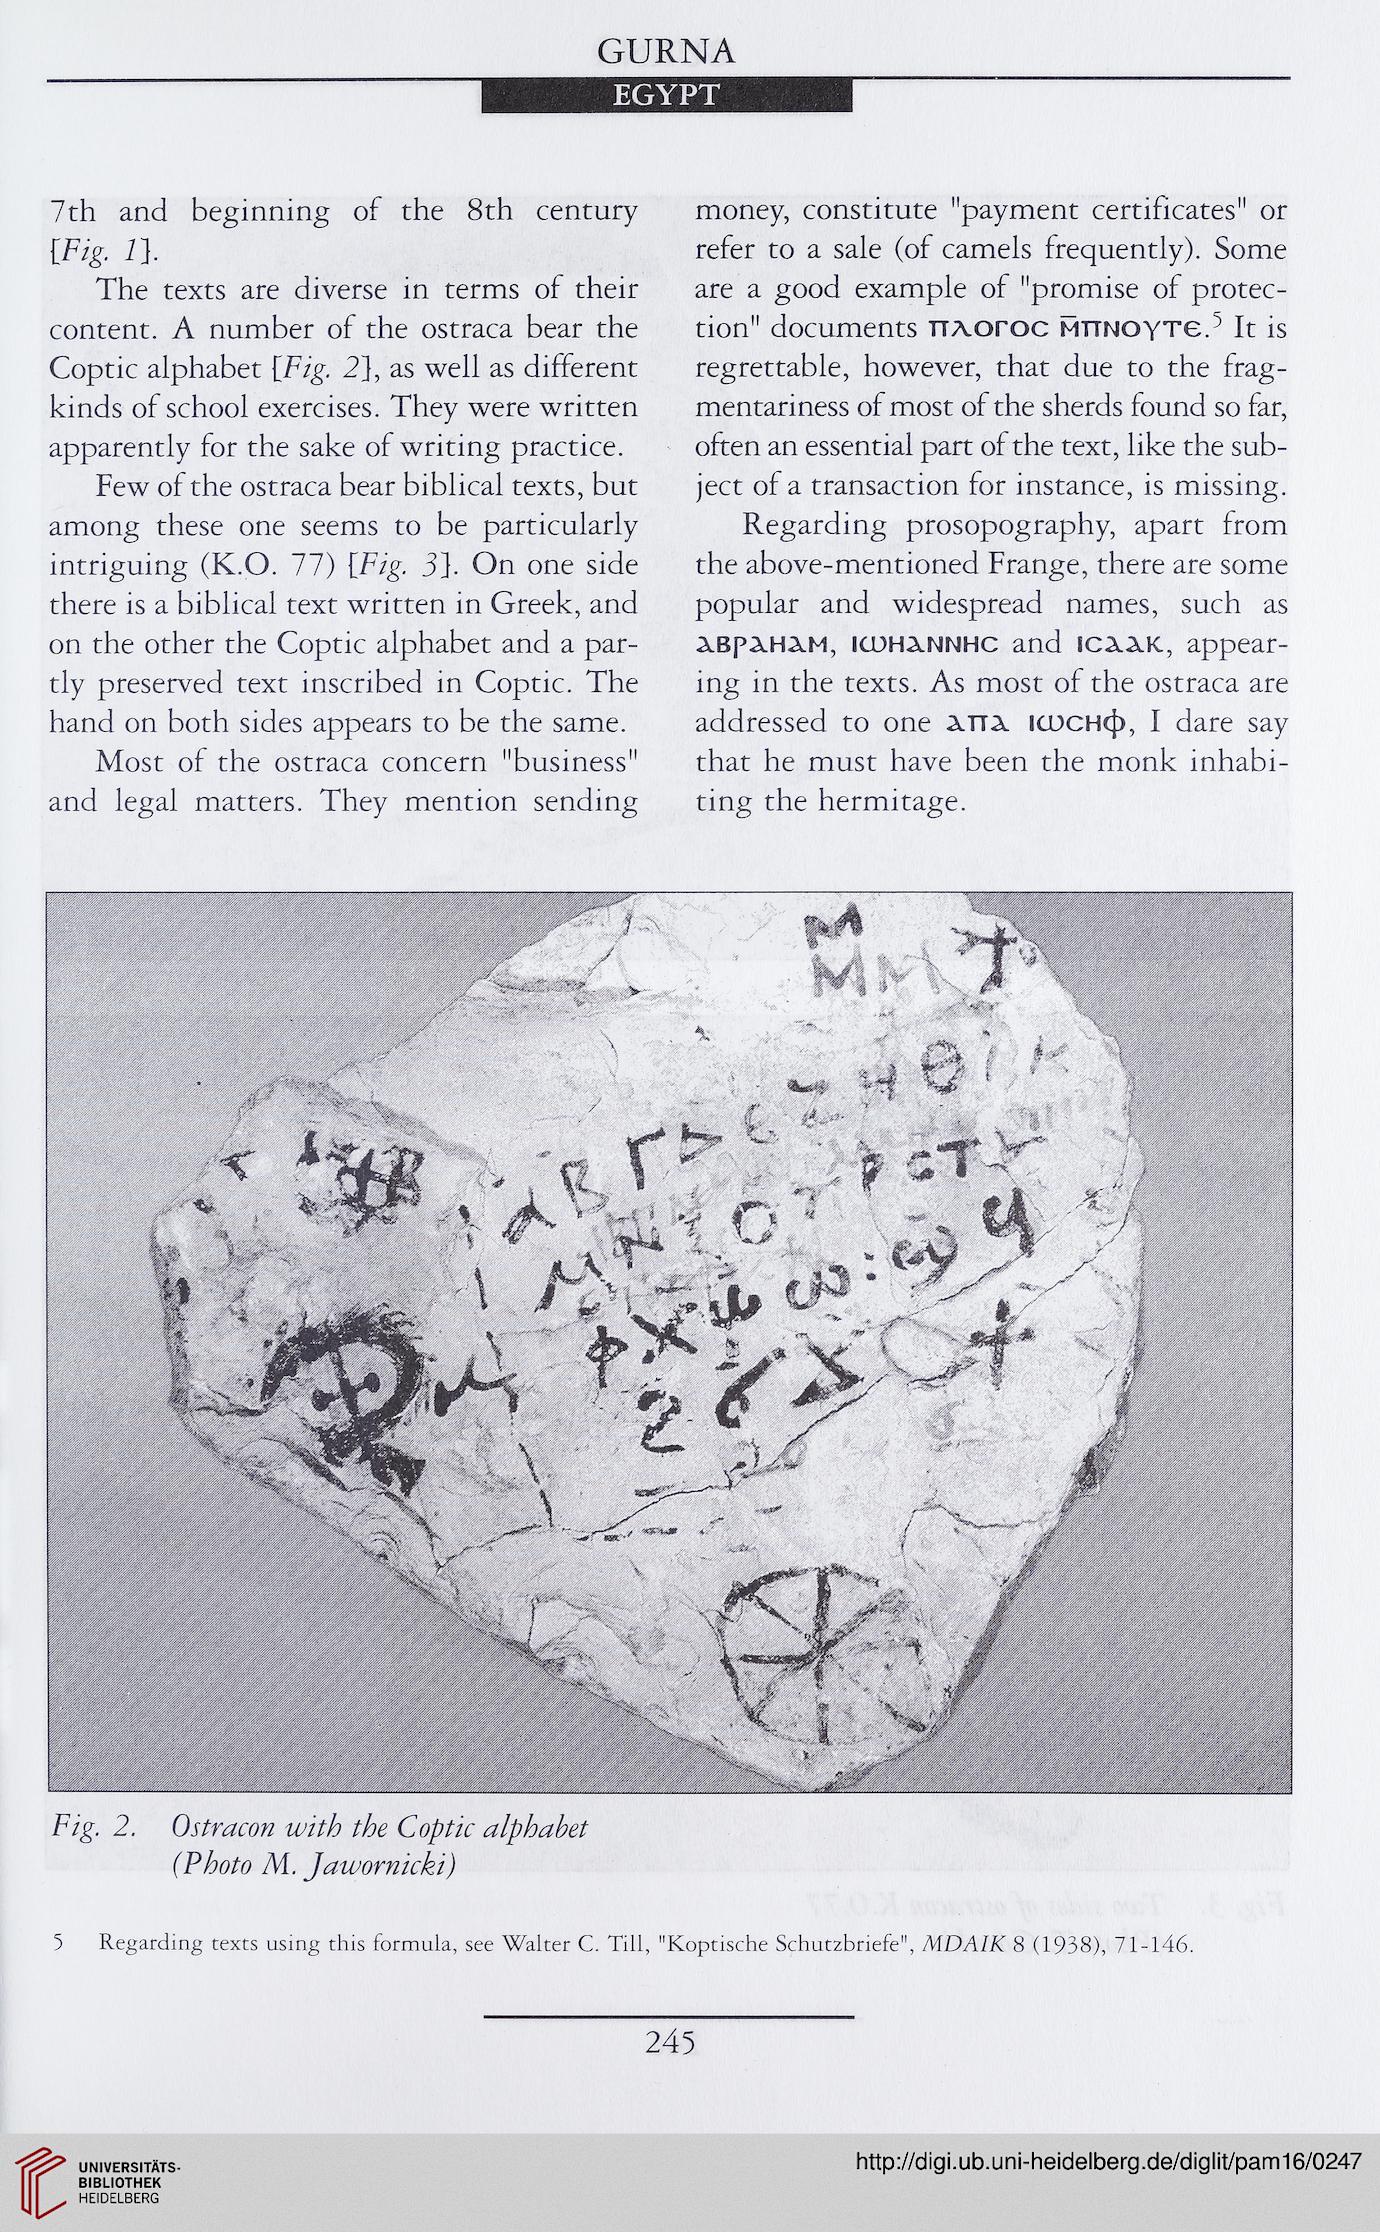 GURNA
EGYPT
7th and beginning of the 8th century
[Fig. 1].
The texts are diverse in terms of their
content. A number of the ostraca bear the
Coptic alphabet [Fig. 2], as well as different
kinds of school exercises. They were written
apparently for the sake of writing practice.
Few of the ostraca bear biblical texts, but
among these one seems to be particularly
intriguing (K.O. 77) [Fig. 3]. On one side
there is a biblical text written in Greek, and
on the other the Coptic alphabet and a par-
tly preserved text inscribed in Coptic. The
hand on both sides appears to be the same.
Most of the ostraca concern "business"
and legal matters. They mention sending
money, constitute "payment certificates" or
refer to a sale (of camels frequently). Some
are a good example of "promise of protec-
tion" documents ⲡⲗⲟⲅⲟⲥ ⲙ̄ⲡⲛⲟⲩⲧⲉ.⁵ It is
regrettable, however, that due to the frag-
mentariness of most of the sherds found so far,
often an essential part of the text, like the sub-
ject of a transaction for instance, is missing.
Regarding prosopography, apart from
the above-mentioned Frange, there are some
popular and widespread names, such as
ⲁⲃⲣⲁⲏⲁⲙ, ⲓⲱⲏⲁⲛⲛⲏⲥ and ⲓⲥⲁⲁⲕ, appear-
ing in the texts. As most of the ostraca are
addressed to one ⲁⲡⲁ ⲓⲱⲥⲏⲫ, I dare say
that he must have been the monk inhabi-
ting the hermitage.
ⲙ
ⲙ ⲙ
ⲁ ⲃ ⲅ ⲇ ⲉ ⲍ ⲏ ⲑ ⲓ ⲕ
ⲙ ⲛ ⲟ ⲣ ⲥ ⲧ ⲩ
ⲫ ⲭ ⲯ ⲱ : ϣ ϥ
ϩ ϭ
Fig. 2. Ostracon with the Coptic alphabet
(Photo M. Jawornicki)
5 Regarding texts using this formula, see Walter C. Till, "Koptische Schutzbriefe", MDAIK 8 (1938), 71-146.
245
UNIVERSITÄTS-
BIBLIOTHEK
HEIDELBERG
http://digi.ub.uni-heidelberg.de/diglit/pam16/0247